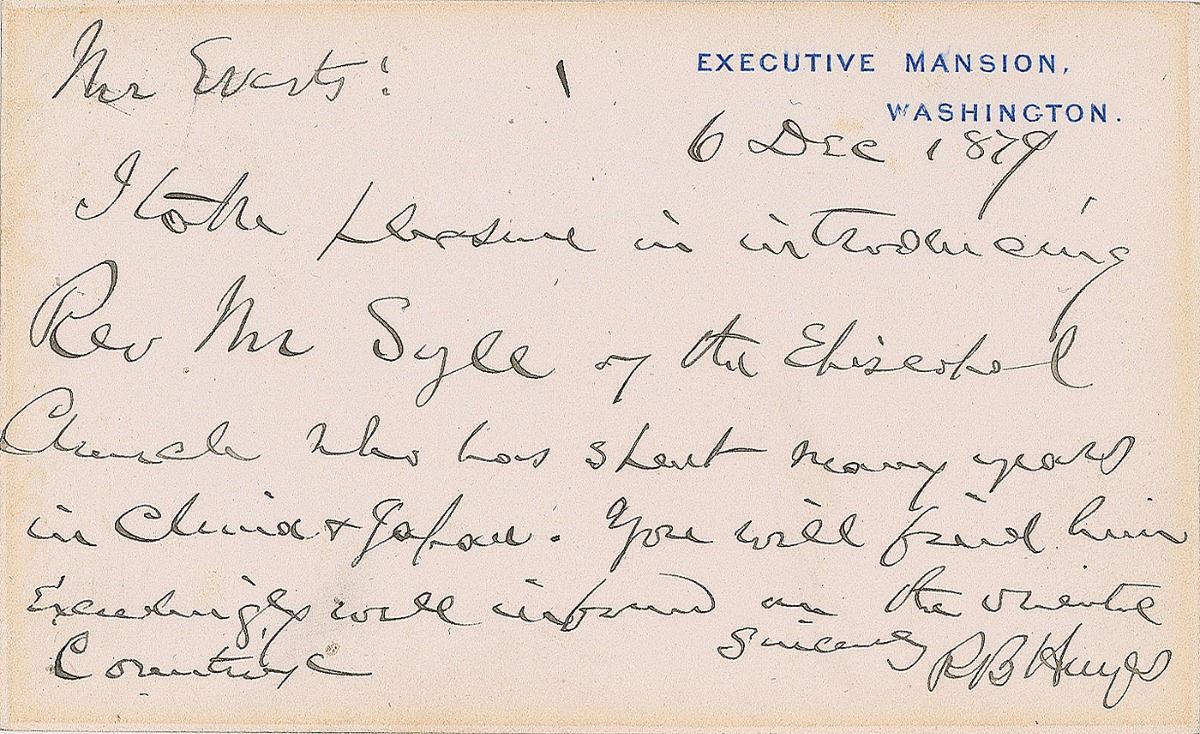 Mr Evarts!
EXECUTIVE MANSION,
WASHINGTON.
6 Dec 1879
I take pleasure in introducing
Rev Mr Syle of the Episcopal
Church who has spent many years
in China & Japan. You will find him
exceedingly well informed on the oriental
Countries
Sincerely R B Hayes